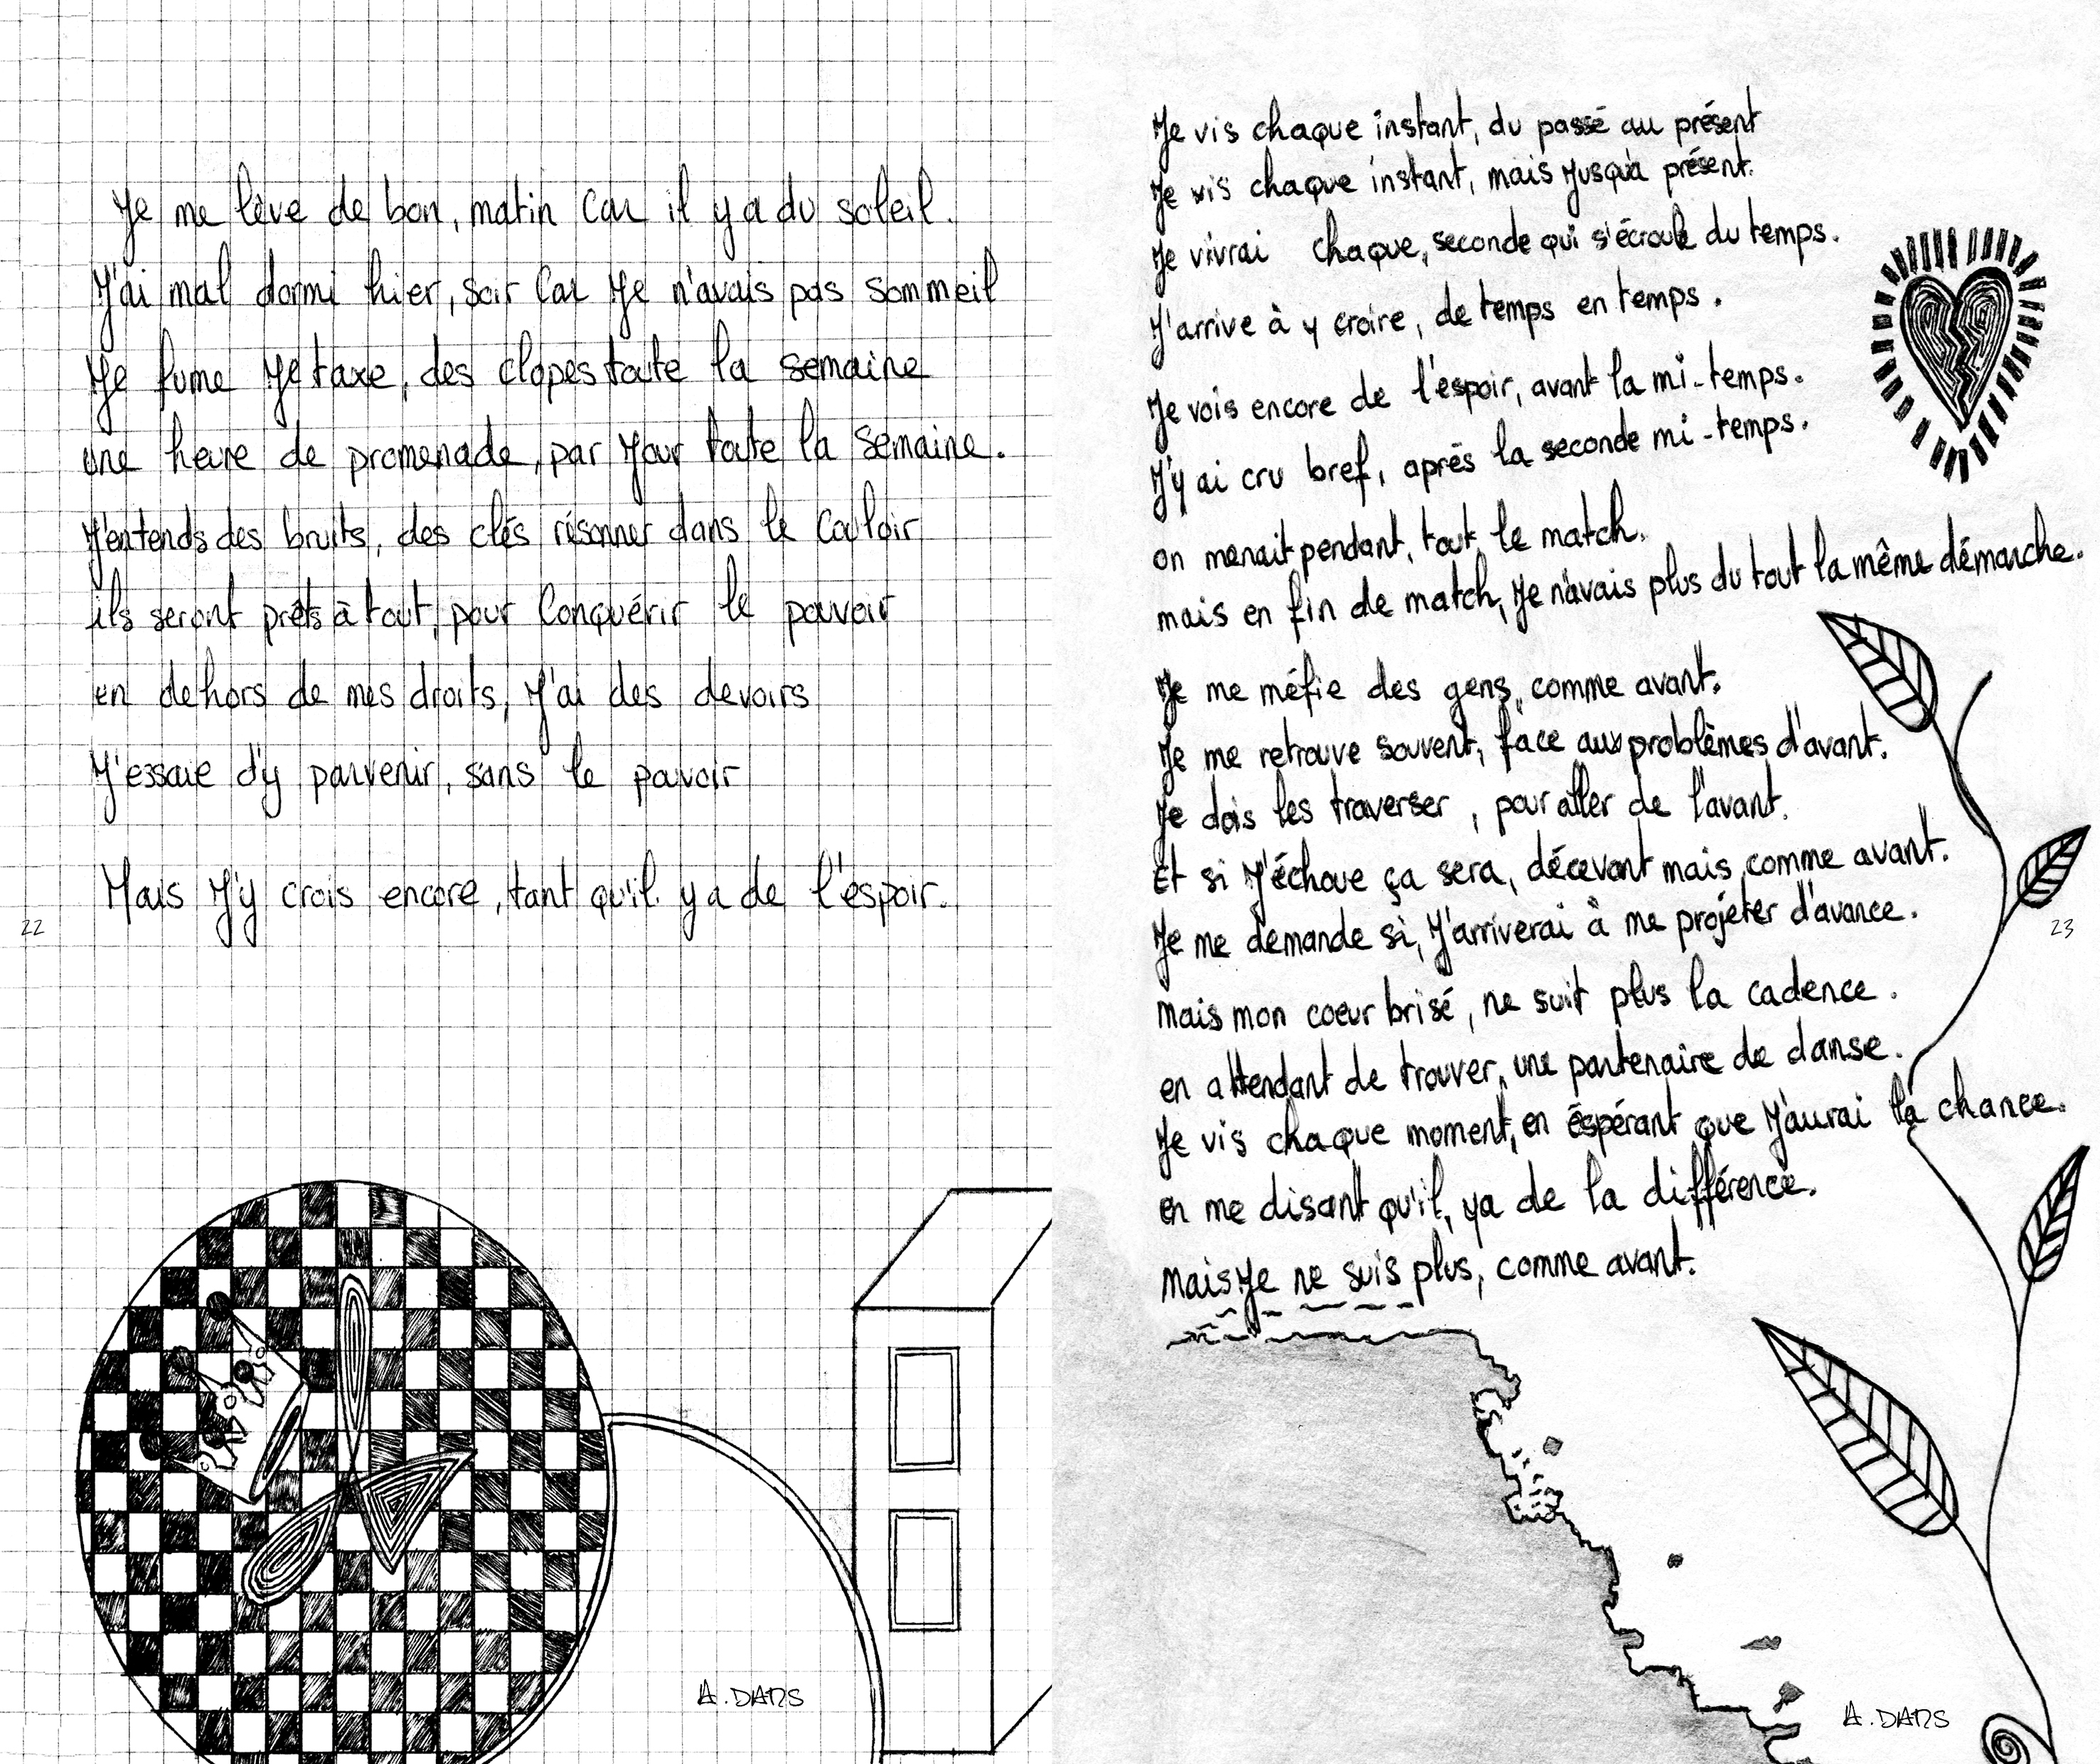 Je me lève de bon, matin car il y a du soleil.
J'ai mal dormi hier, soir car je n'avais pas sommeil
Je fume je taxe, des clopes toute la semaine
une heure de promenade, par jour toute la semaine.
J'entends des bruits, des clés résonner dans le couloir
ils seront prêts à tout, pour conquérir le pouvoir
en dehors de mes droits, j'ai des devoirs
J'essaie d'y parvenir, sans le pouvoir
Mais j'y crois encore, tant qu'il y a de l'espoir.
22
A. DANS
Je vis chaque instant, du passé au présent
Je vis chaque instant, mais jusqu'à présent.
Je vivrai chaque, seconde qui s'écroule du temps.
J'arrive à y croire, de temps en temps.
Je vois encore de l'espoir, avant la mi-temps.
J'y ai cru bref, après la seconde mi-temps.
on menait pendant, tout le match.
mais en fin de match, je n'avais plus du tout la même démarche.
Je me méfie des gens, comme avant.
Je me retrouve souvent, face aux problèmes d'avant.
Je dois les traverser, pour aller de l'avant.
Et si j'échoue ça sera, décevant mais comme avant.
Je me demande si, j'arriverai à me projeter d'avance.
mais mon coeur brisé, ne suit plus la cadence.
en attendant de trouver, une partenaire de danse.
Je vis chaque moment, en éspérant que j'aurai la chance.
en me disant qu'il, ya de la différence.
mais je ne suis plus, comme avant.
23
A. DANS